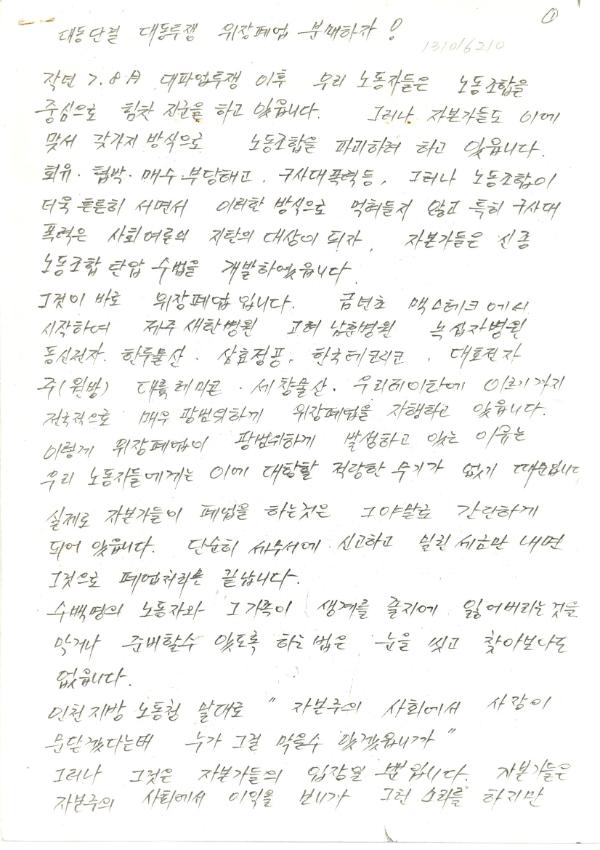 ①
대동단결 대동투쟁 위장폐업 분쇄하자!
131016210
작년 7.8月 대파업투쟁 이후 우리 노동자들은 노동조합을
중심으로 힘찬 진군을 하고 있읍니다. 그러나 자본가들도 이에
맞서 갖가지 방식으로 노동조합을 파괴하려 하고 있읍니다.
회유·협박·매수·부당해고, 구사대폭력등, 그러나 노동조합이
더욱 튼튼히 서면서 이러한 방식으로 먹혀들지 않고 특히 구사대
폭력은 사회여론의 지탄의 대상이 되자, 자본가들은 신종
노동조합 탄압 수법을 개발하였읍니다
그것이 바로 위장폐업 입니다. 금년초 맥스테크에서
시작하여 제주 새한병원 고려 남훈병원 녹십자병원
동신전자. 한두물산. 삼효정공, 한국테코리코, 대표전자
주(원방) 대륙레미콘·세창물산. 우리데이타에 이르기까지
전국적으로 매우 광범위하게 위장폐업을 자행하고 있읍니다.
이렇게 위장폐업이 광범위하게 발생하고 있는 이유는
우리 노동자들에게는 이에 대항할 적당한 무기가 없기 때문입니다
실제로 자본가들이 폐업을 하는것은 그야말로 간단하게
되어 있읍니다. 단순히 세무서에 신고하고 밀린 세금만 내면
그것으로 폐업처리는 끝납니다.
수백명의 노동자와 그가족이 생계를 졸지에 잃어버리는것을
막거나 준비할수 있도록 하는법은 눈을 씻고 찾아보아도
없읍니다.
인천지방 노동청 말대로 " 자본주의 사회에서 사장이
문닫겠다는데 누가 그걸 막을수 있겠읍니까 "
그러나 그것은 자본가들의 입장일 뿐입니다. 자본가들은
자본주의 사회에서 이익을 보니까 그런 소리를 하지만